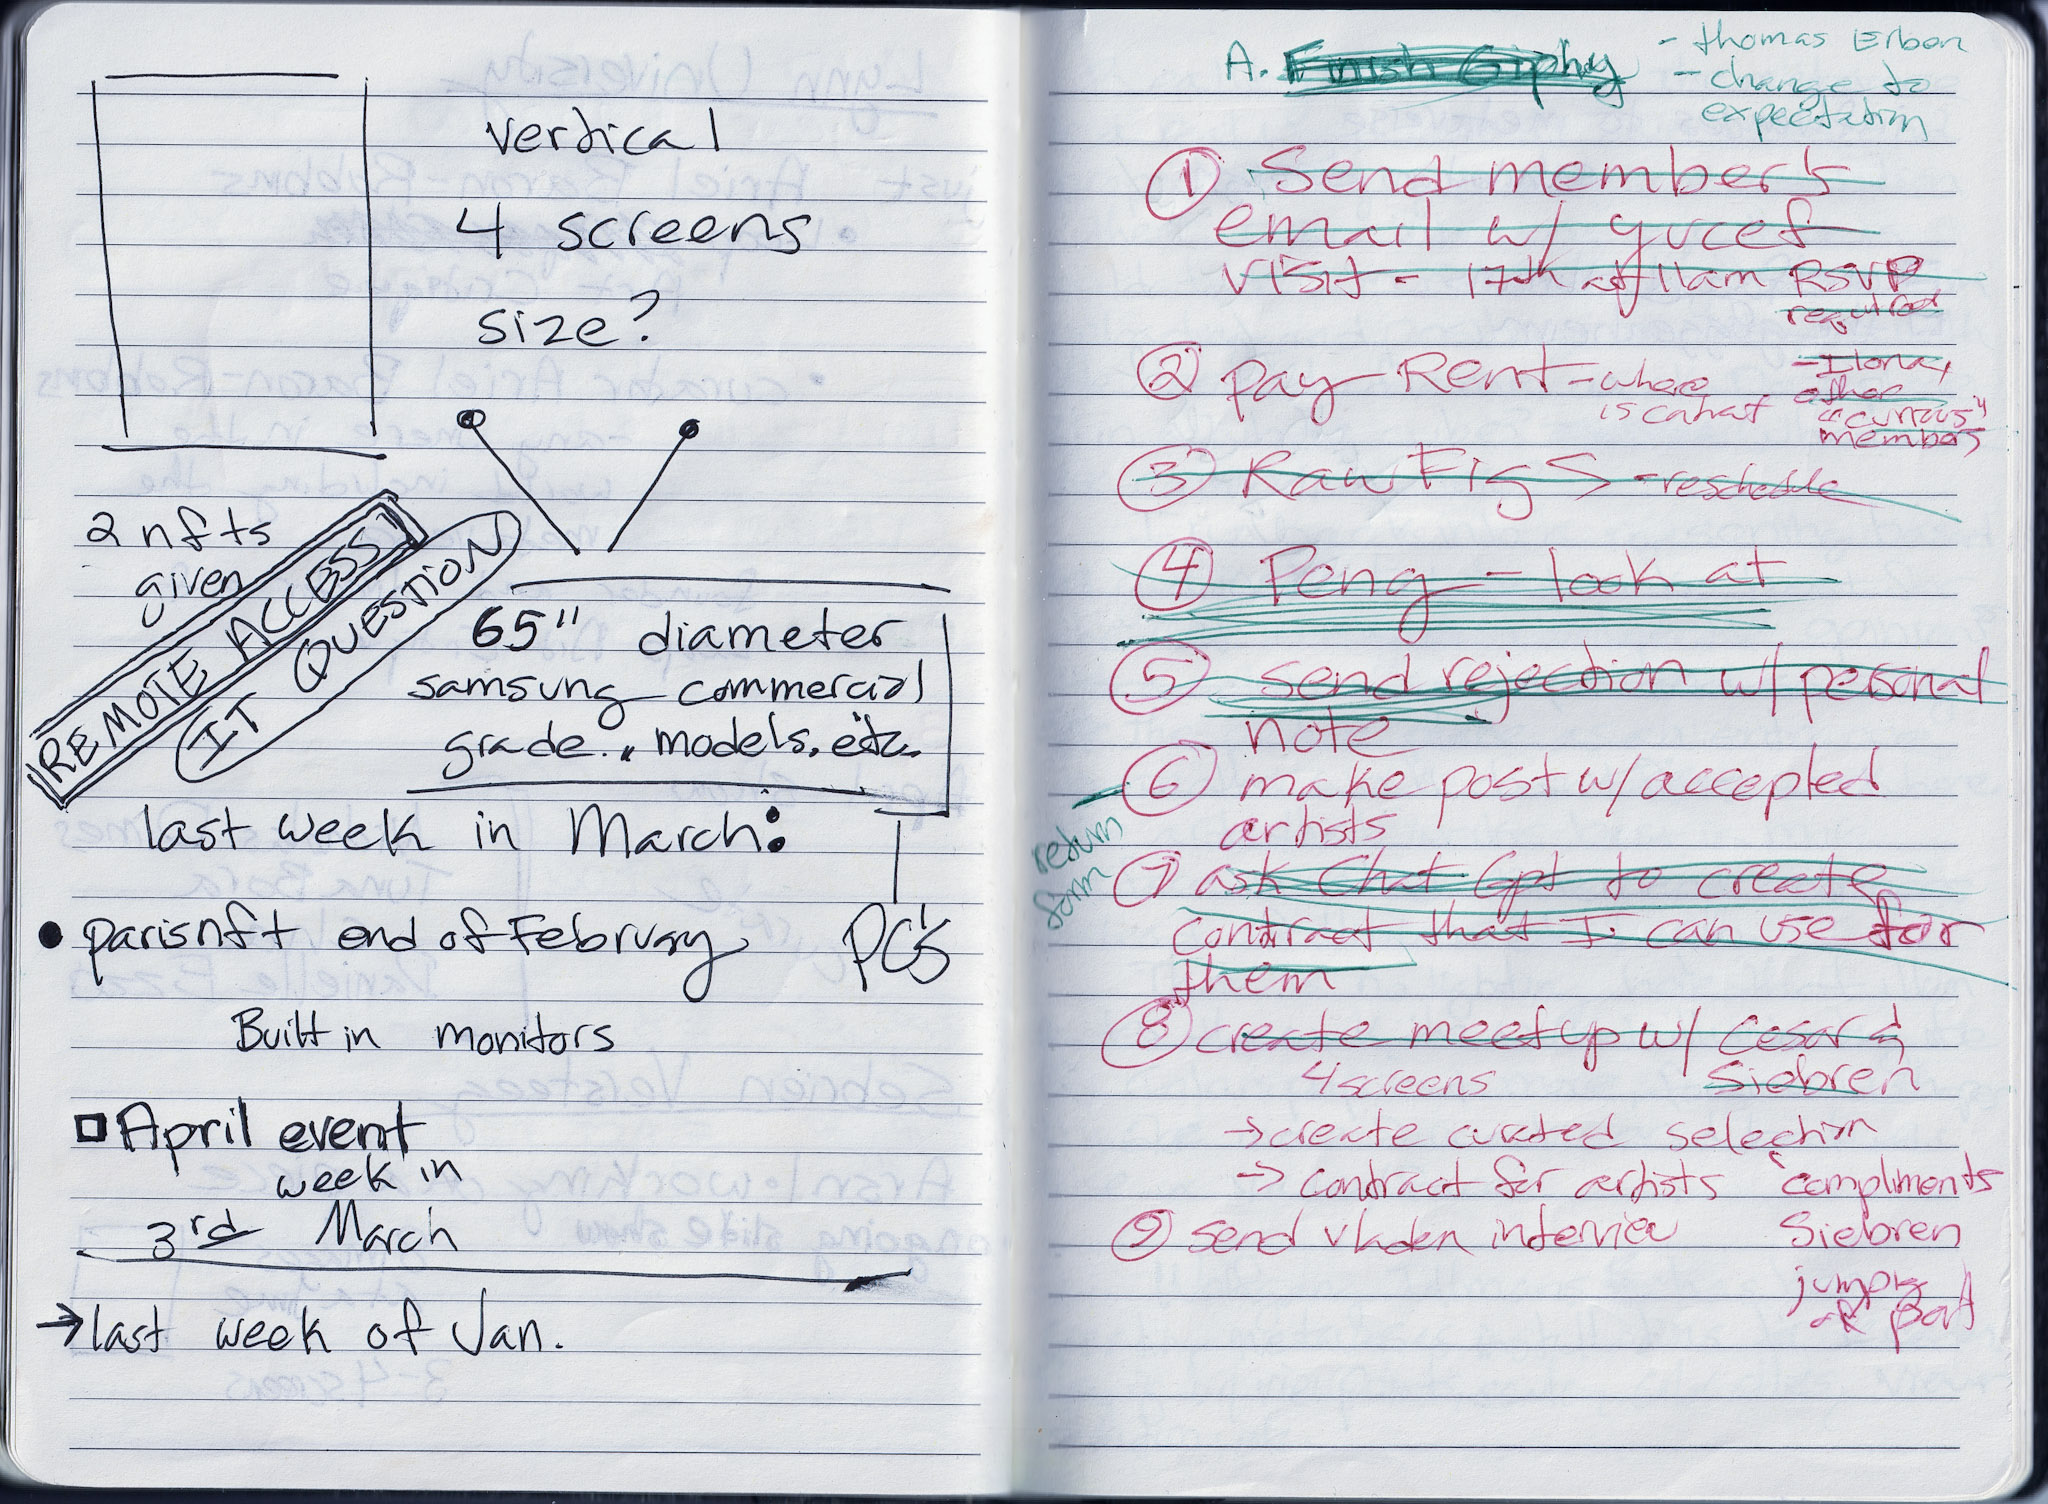 vertical
4 screens
size?
2 nfts
given
REMOTE ACCESS!
IT QUESTION
65" diameter
samsung commercial
grade.. models, etc.
last week in March:
• parisnft end of February
PC's
Built in monitors
April event
week in
3rd March
→ last week of Jan.
A. Finish Giphy
- thomas Erben
- change to
expectation
① Send members
email w/ yucef
visit - 17th at 11am RSVP
required
- Ilona,
other
"curious"
members
② pay Rent - where
is cahast
③ Raw Figs - reschedule
④ Peng - look at
⑤ send rejection w/ personal
note
⑥ make post w/ accepted
artists
return
form
⑦ ask Chat Gpt to create
contract that I can use for
them
⑧ create meetup w/ Cesar &
Siebren
4 screens
→ create curated selection
→ contract for artists
compliments
Siebren
jumping
off
⑨ send vladen interview